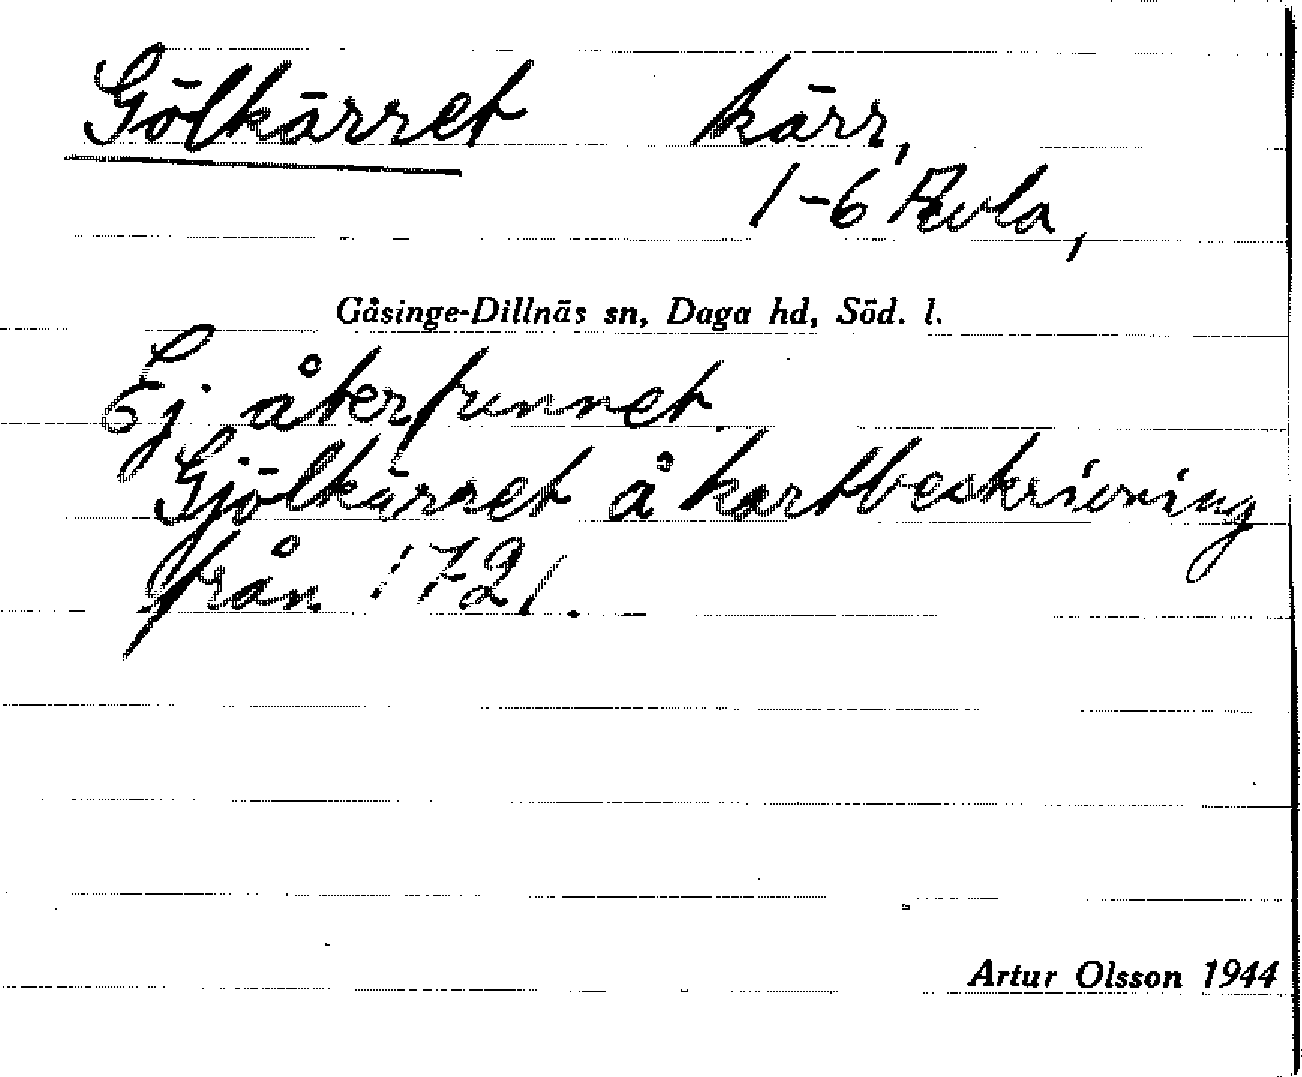 Gölkärret kärr,
1-6
Gåsinge-Dillnäs sn, Daga hd, Söd. l.
Ej återfunnet.
Gjölkärret å kartbeskrivning
från 1721.
Artur Olsson 1944